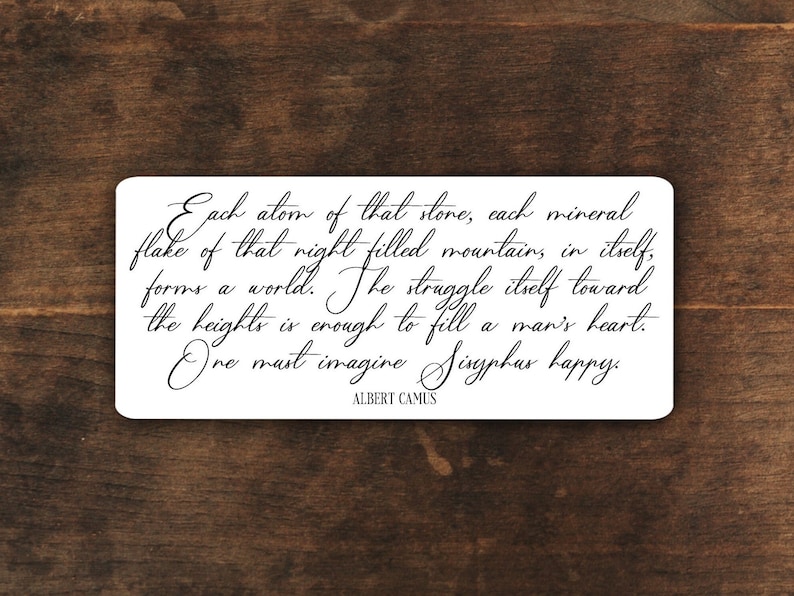 Each atom of that stone, each mineral
flake of that night filled mountain, in itself,
forms a world. The struggle itself toward
the heights is enough to fill a man's heart.
One must imagine Sisyphus happy.
ALBERT CAMUS